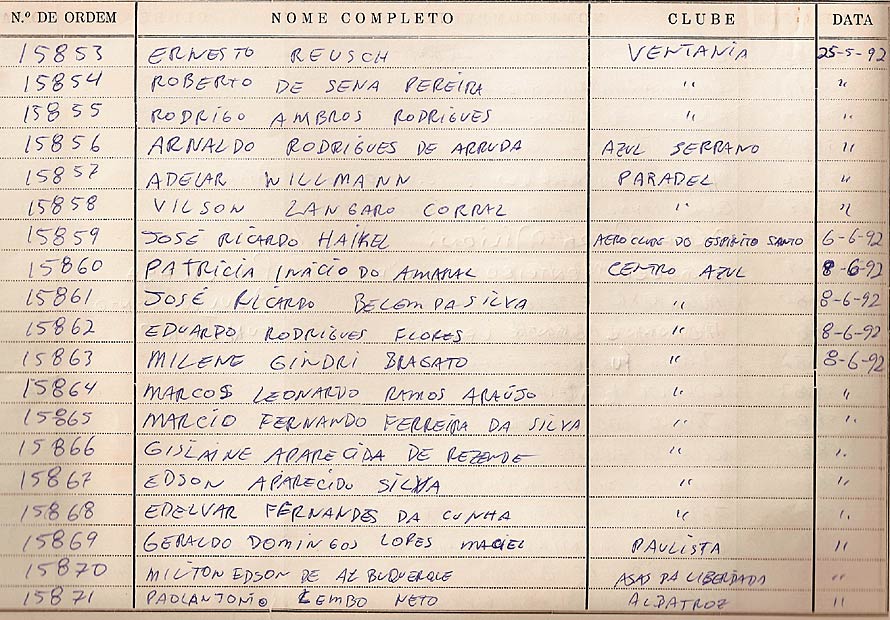 N.º DE ORDEM NOME COMPLETO CLUBE DATA
15853 ERNESTO REUSCH VENTANIA 25-5-92
15854 ROBERTO DE SENA PEREIRA " "
15855 RODRIGO AMBROS RODRIGUES " "
15856 ARNALDO RODRIGUES DE ARRUDA AZUL SERRANO "
15857 ADELAR WILLMANN PARADEL "
15858 VILSON ZANGARO CORRAL " "
15859 JOSÉ RICARDO HAIKEL AEROCLUBE DO ESPÍRITO SANTO 6-6-92
15860 PATRÍCIA INÁCIO DO AMARAL CENTRO AZUL 8-6-92
15861 JOSÉ RICARDO BELEM DA SILVA " 8-6-92
15862 EDUARDO RODRIGUES FLORES " 8-6-92
15863 MILENE GINDRI BRAGATO " 8-6-92
15864 MARCOS LEONARDO RAMOS ARAÚJO " "
15865 MARCIO FERNANDO FERREIRA DA SILVA " "
15866 GISLAINE APARECIDA DE REZENDE " "
15867 EDSON APARECIDO SILVA " "
15868 EDELVAR FERNANDES DA CUNHA " "
15869 GERALDO DOMINGOS LOPES MACIEL PAULISTA "
15870 MILTON EDSON DE ALBUQUERQUE ASAS DA LIBERDADA "
15871 PAOLANTONIO LEMBO NETO ALBATROZ "